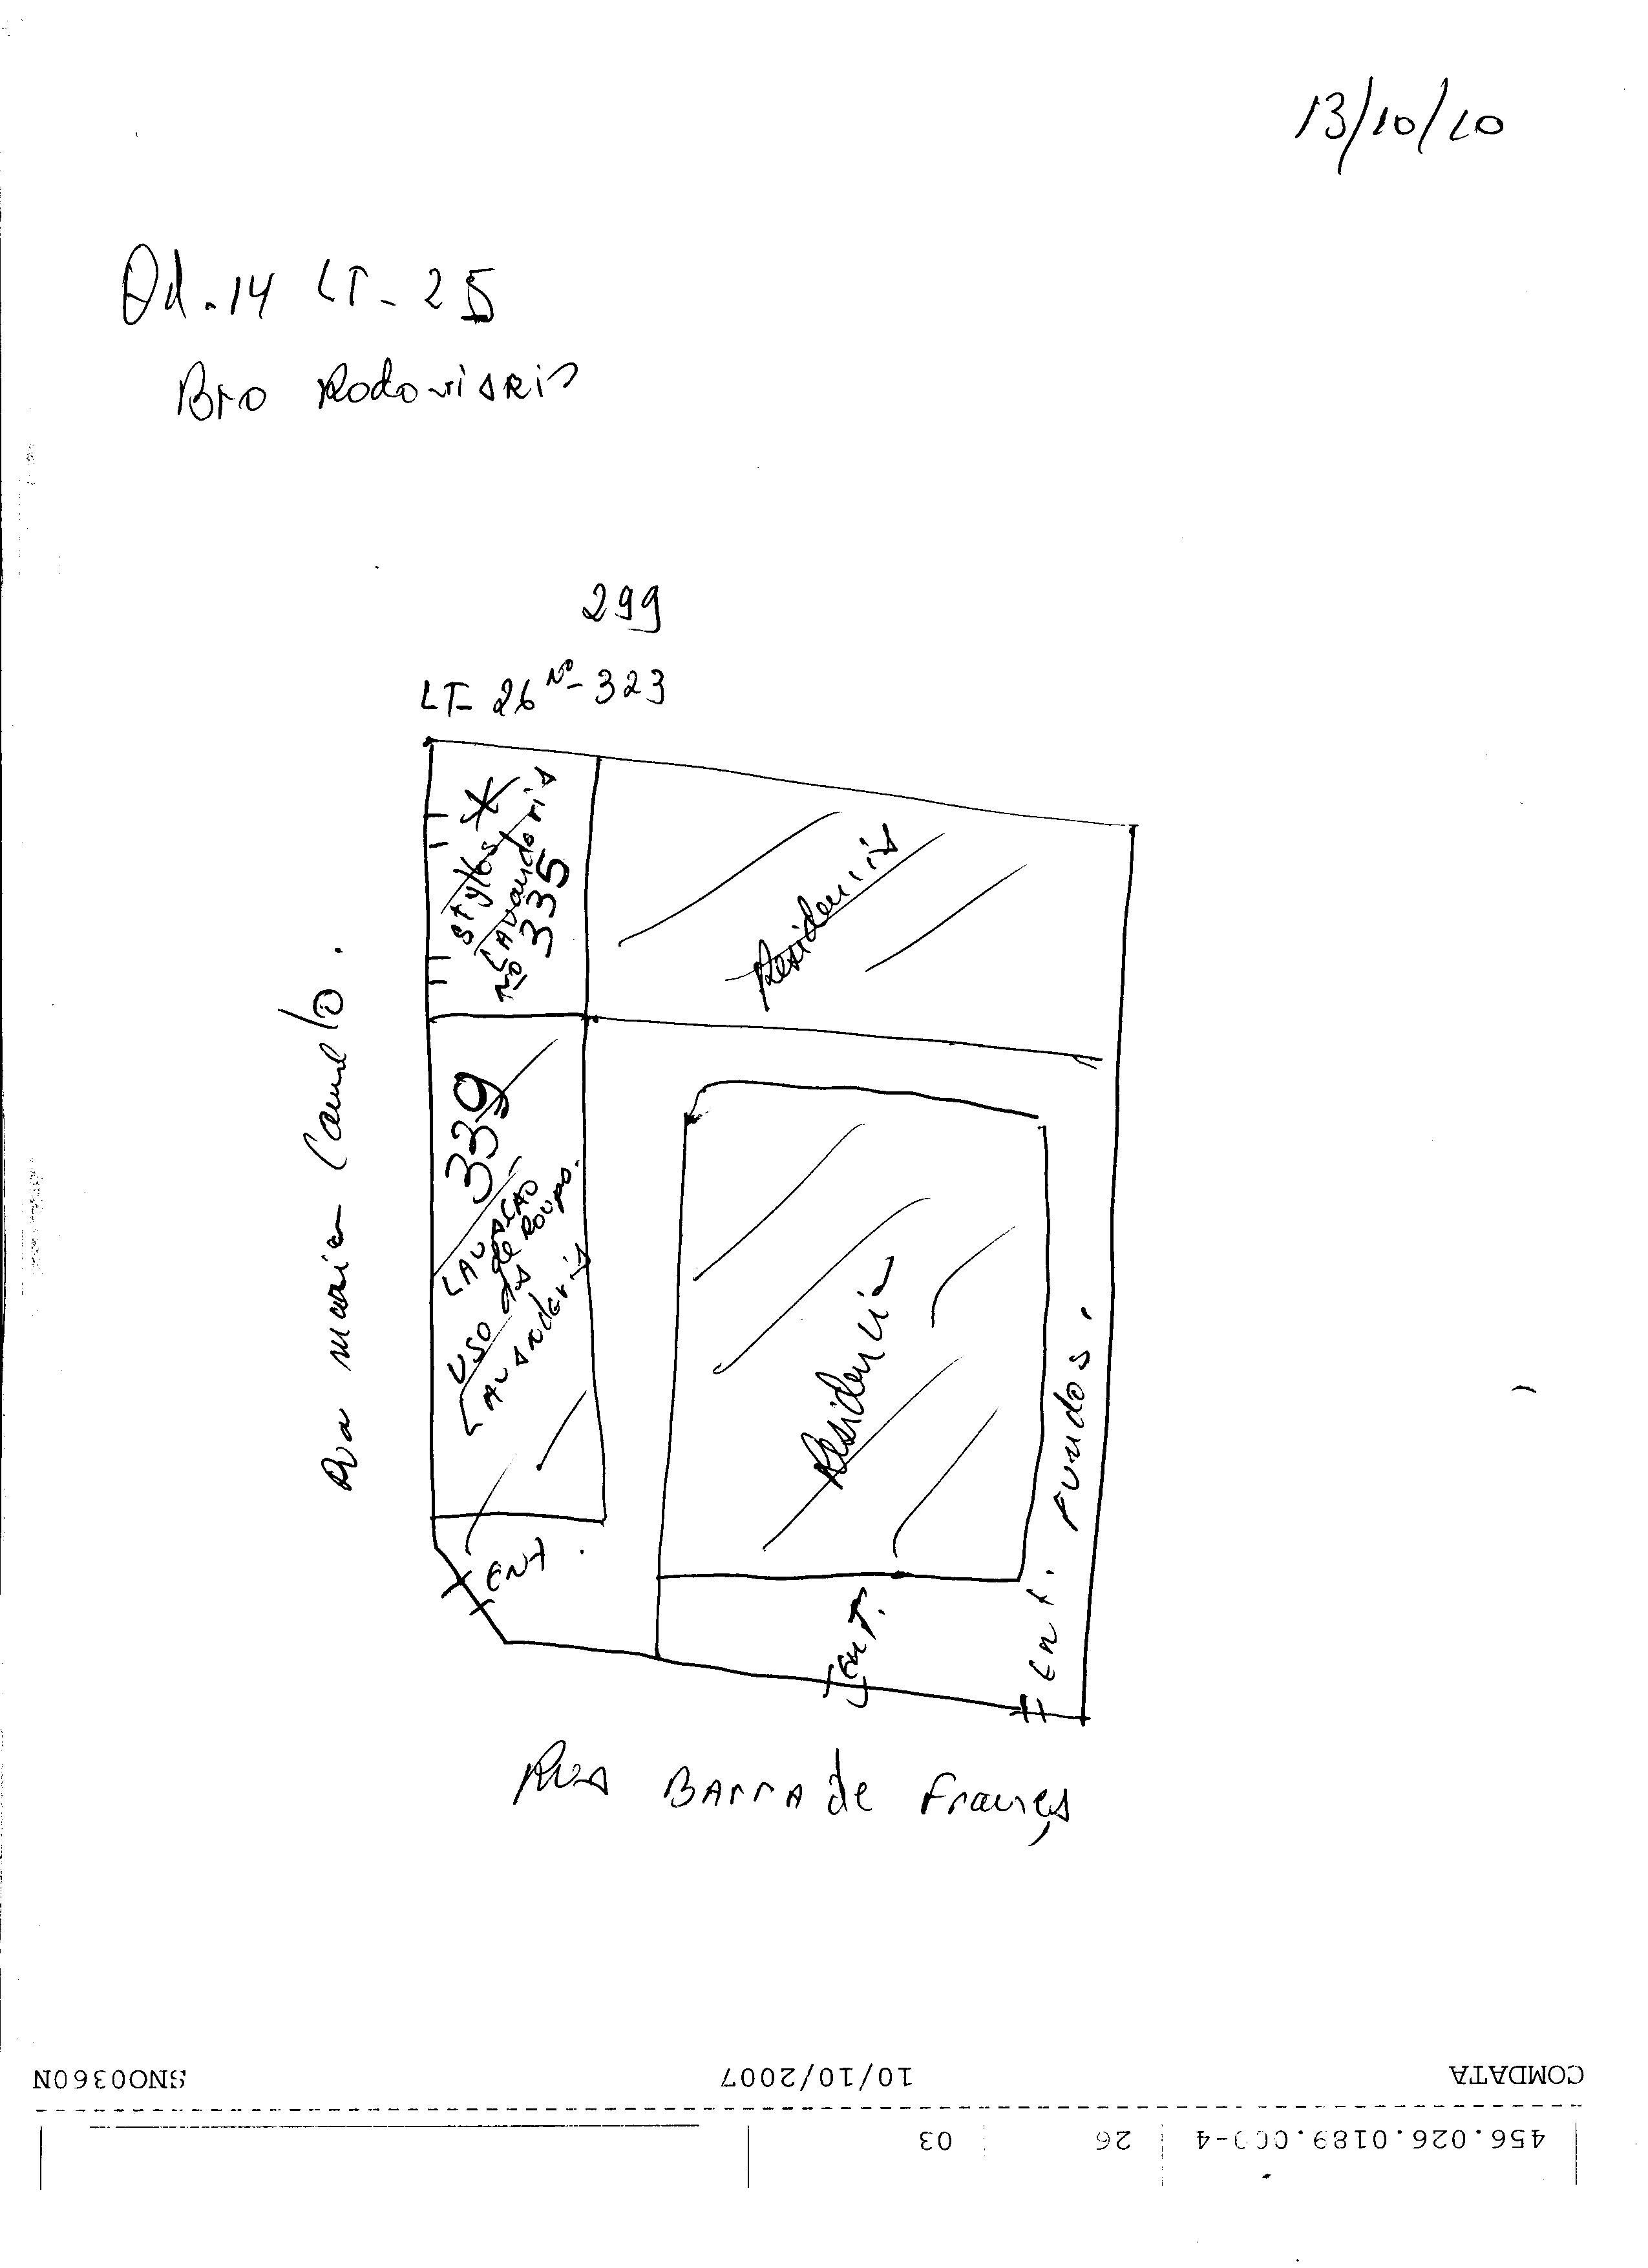 13/10/10
Qd.14 LT-25
Bro Rodoviario
299
LT-26 Nº-323
Stylos
Lavanderia
Nº 335
Residencia
339
LAVAÇAO
de Roupa.
USO das
LAVANDERIA
Residencia
Rua maria Camelo.
ENT.
ENT.
Ent. Fundos.
Rua BARRA de França
COMDATA 10/10/2007
456.026.0189. 26 03